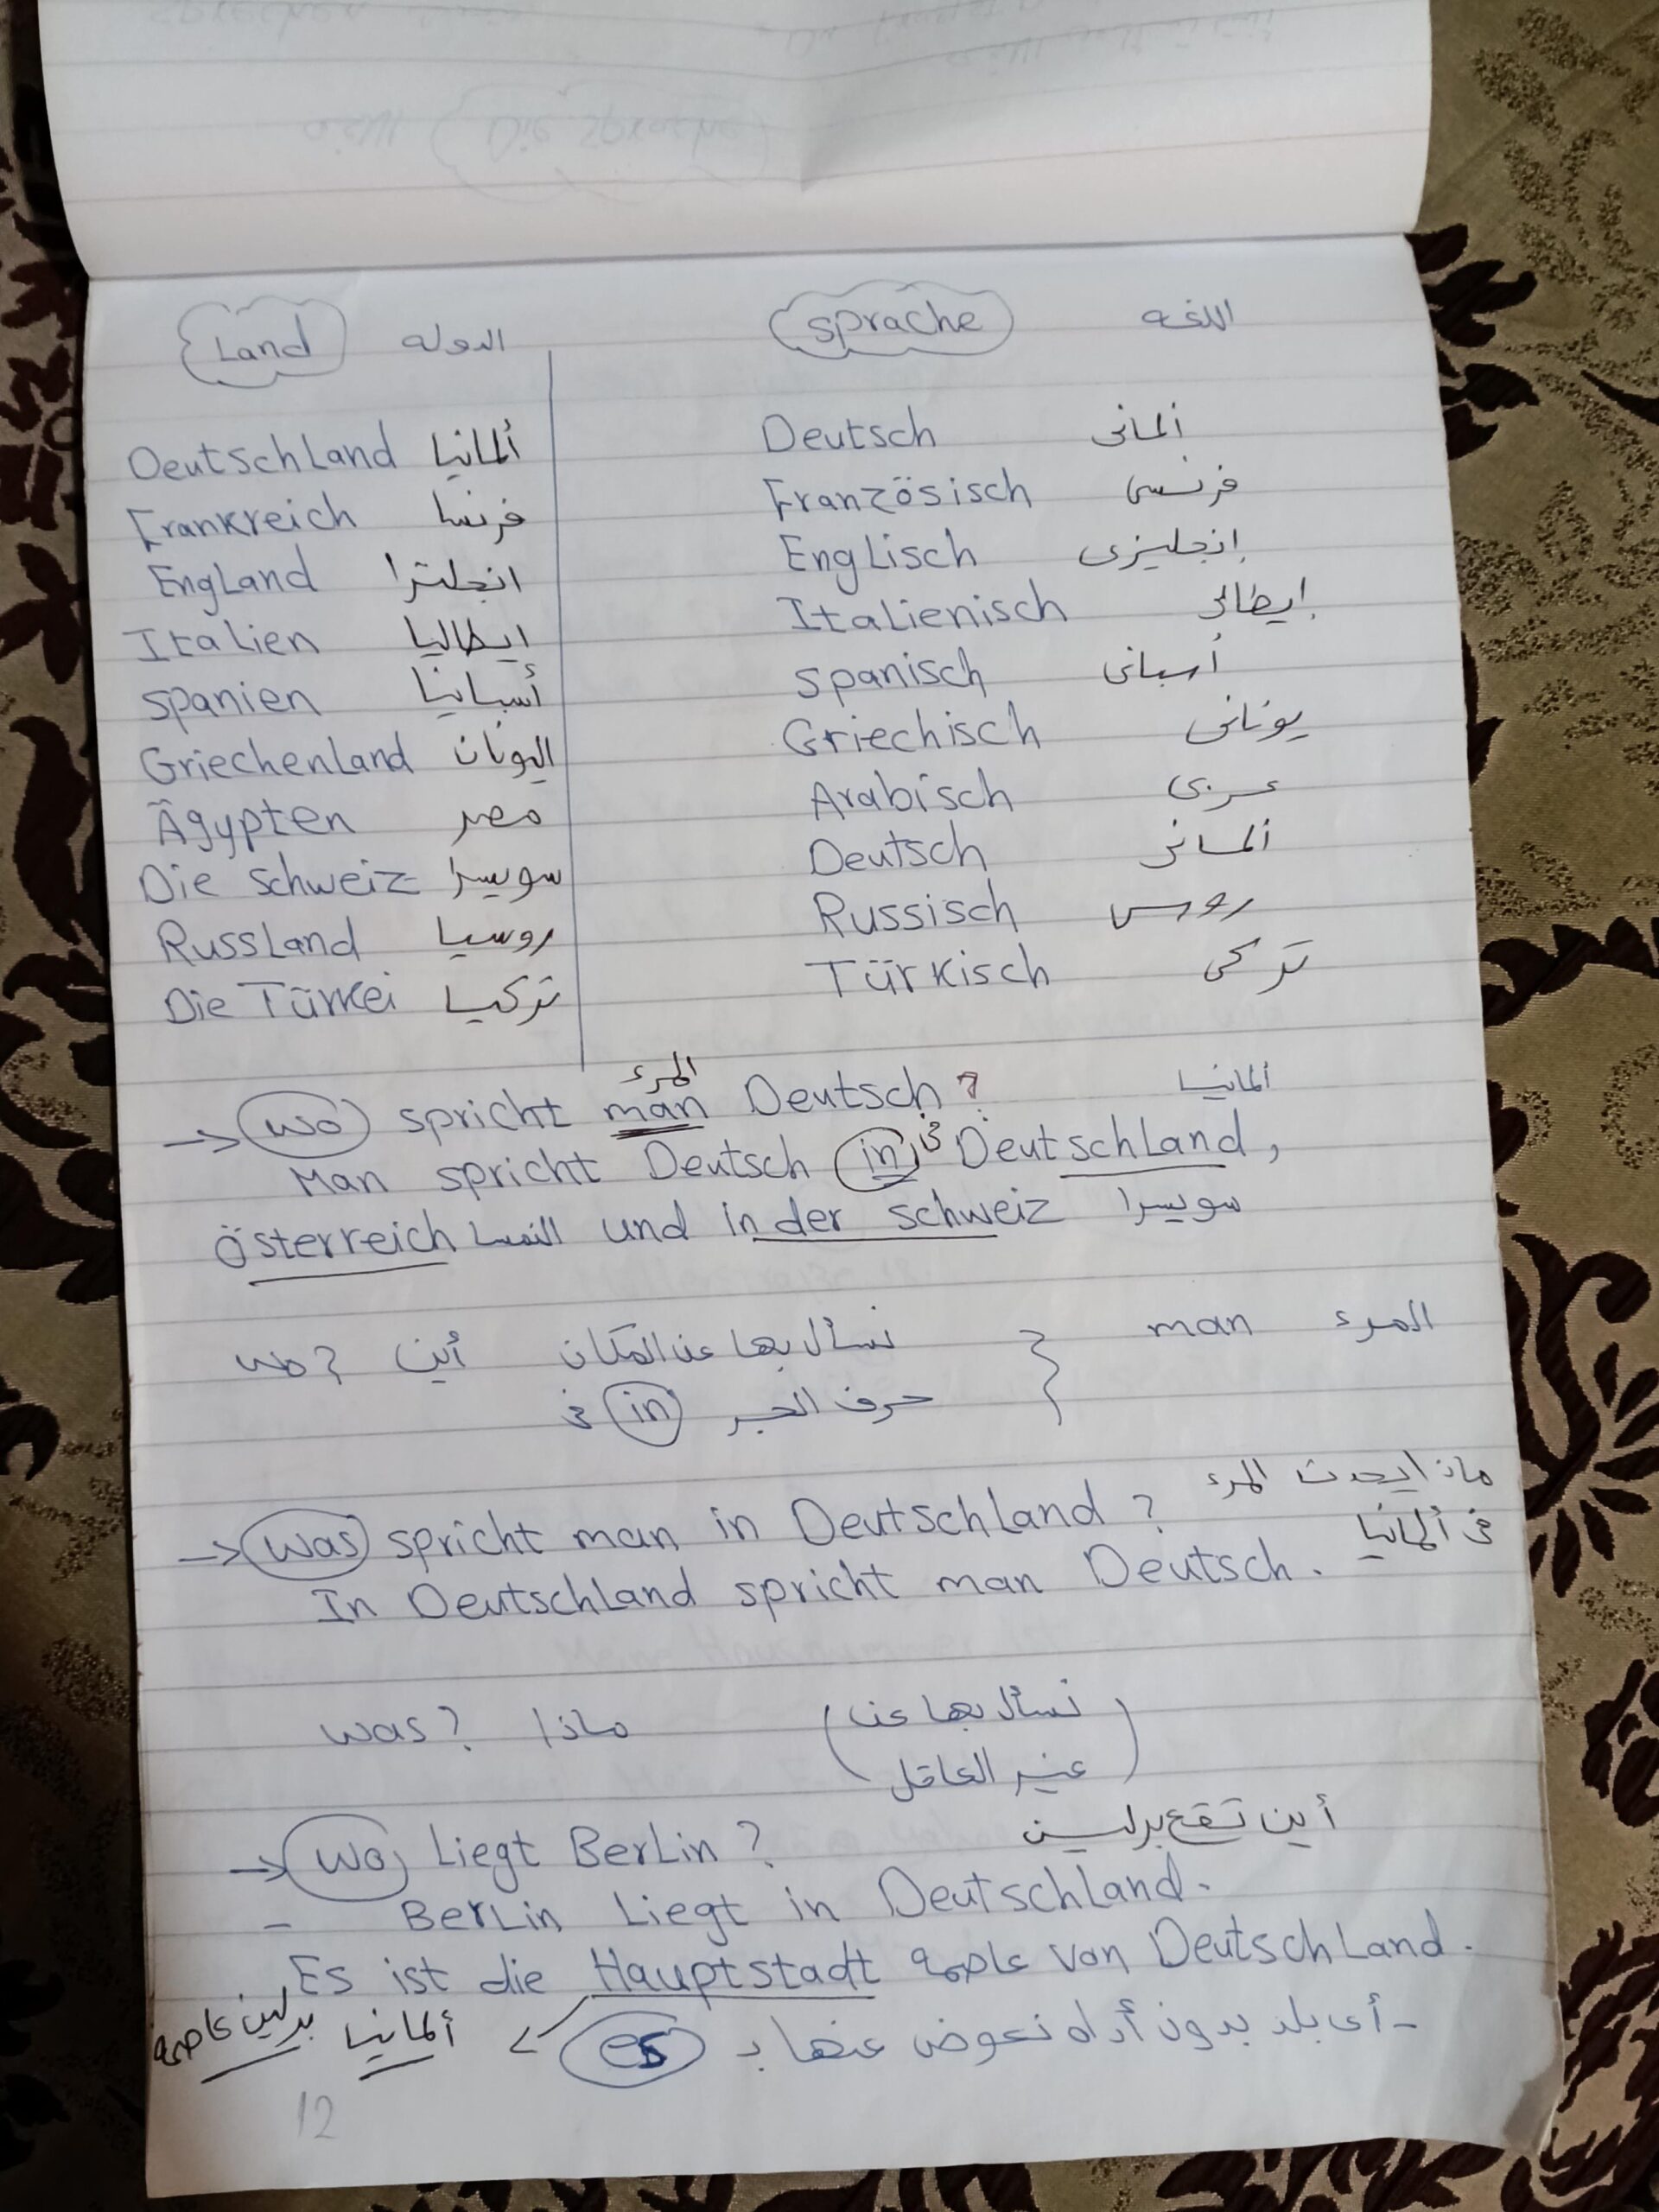 Land الدوله sprache اللغه
Deutschland ألمانيا Deutsch ألمانى
Frankreich فرنسا Französisch فرنسى
England انجلترا Englisch إنجليزى
Italien ايطاليا Italienisch إيطالى
spanien أسبانيا spanisch أسبانى
Griechenland اليونان Griechisch يونانى
Ägypten مصر Arabisch عربى
Die schweiz سويسرا Deutsch ألمانى
Russland روسيا Russisch روسى
Die Türkei تركيا Türkisch تركى
المرء ألمانيا
→ wo spricht man Deutsch ?
Man spricht Deutsch in فى Deutschland,
österreich النمسا und in der schweiz سويسرا
wo ? أين نسأل بها عن المكان } man المرء
حرف الجر in فى
ماذا يحدث المرء
→ was spricht man in Deutschland ? فى ألمانيا
In Deutschland spricht man Deutsch.
was ? ماذا (نسأل بها عن
غير العاقل)
→ wo Liegt Berlin ? أين تقع برلين
- Berlin Liegt in Deutschland.
Es ist die Hauptstadt عاصمة von Deutschland.
برلين عاصمة ألمانيا
- أى بلد بدون أداه نعوض عنها بـ es
12